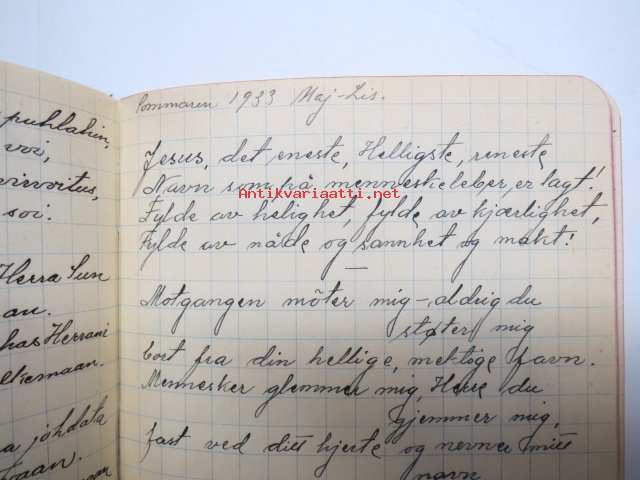 puhtahin,
voi,
virvoitus,
soi.
Herra Sun
an.
Herrani
johdata
Sommaren 1933 Maj-Lis.
Jesus, det eneste, Helligste, reneste
Navn som på menneskeleber er lagt!
Fylde av hélighet, fylde av kjærlighet,
Fylde av nåde og sannhet og makt!
Motgangen möter mig - aldrig du
støter mig
bort fra din hellige, mektige favn.
Mennesker glemmer mig, Herre du
gjemmer mig,
fast ved ditt hjerte og nevner mitt
navn
Antikvariaatti.net